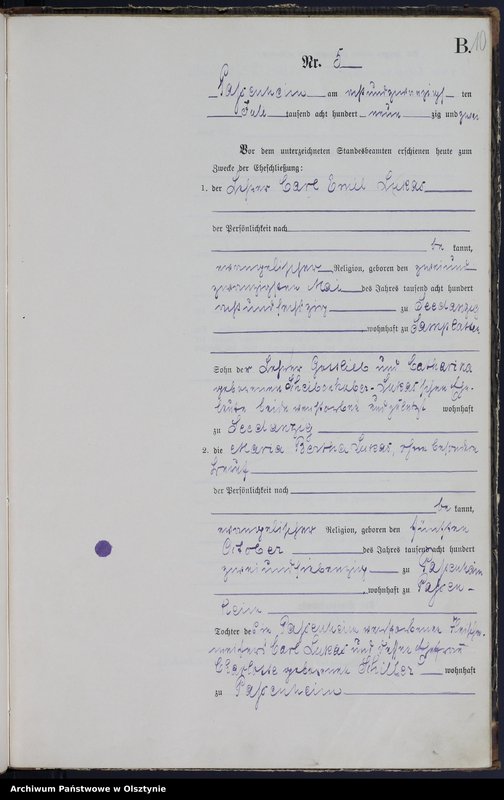 B. 10
Nr. 5
Passenheim am achtundzwanzigsten
Juli tausend acht hundert neunzig und zwei
Vor dem unterzeichneten Standesbeamten erschienen heute zum
Zwecke der Eheschließung:
1. der Lehrer Carl Emil Lukas
der Persönlichkeit nach
be kannt,
evangelischer Religion, geboren den zweiund
zwanzigsten Mai des Jahres tausend acht hundert
achtundsechszig zu Seedanzig
, wohnhaft zu
Sohn der Lehrer Gottlieb und Catharina
geborenen Lukas'schen Ehe-
leute, beide verstorben und zuletzt wohnhaft
zu Seedanzig
2. die Maria Bertha Lukas, ohne besonderen
Beruf
der Persönlichkeit nach
be kannt,
evangelischer Religion, geboren den fünften
October des Jahres tausend acht hundert
zweiundsiebenzig zu Passenheim
, wohnhaft zu Passen-
heim
Tochter des in Passenheim verstorbenen Fleischer-
meisters Carl Lukas und dessen Ehefrau
Charlotte geborenen Schiller wohnhaft
zu Passenheim
Archiwum Państwowe w Olsztynie